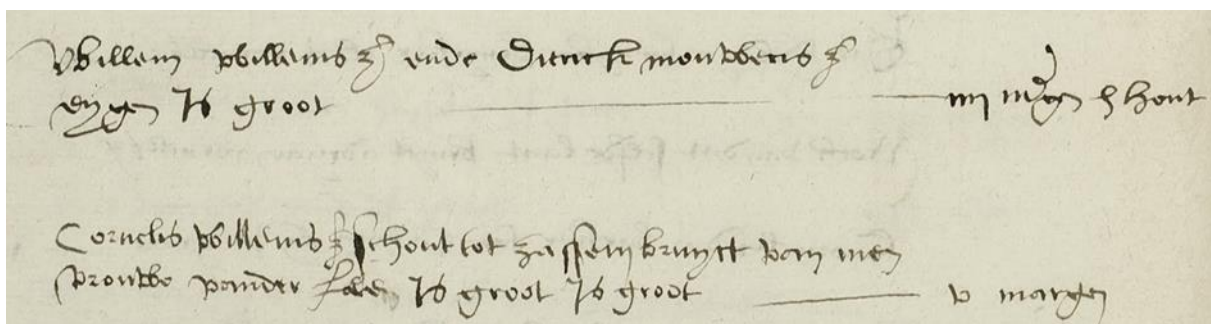 Willem Willems z ende Dirrick mouweris z
eygen Is groot iiii mergen j hont
Cornelis Willems z schout tot zassem bruyct van mer
vrouwe vander Is groot Is groot v margen